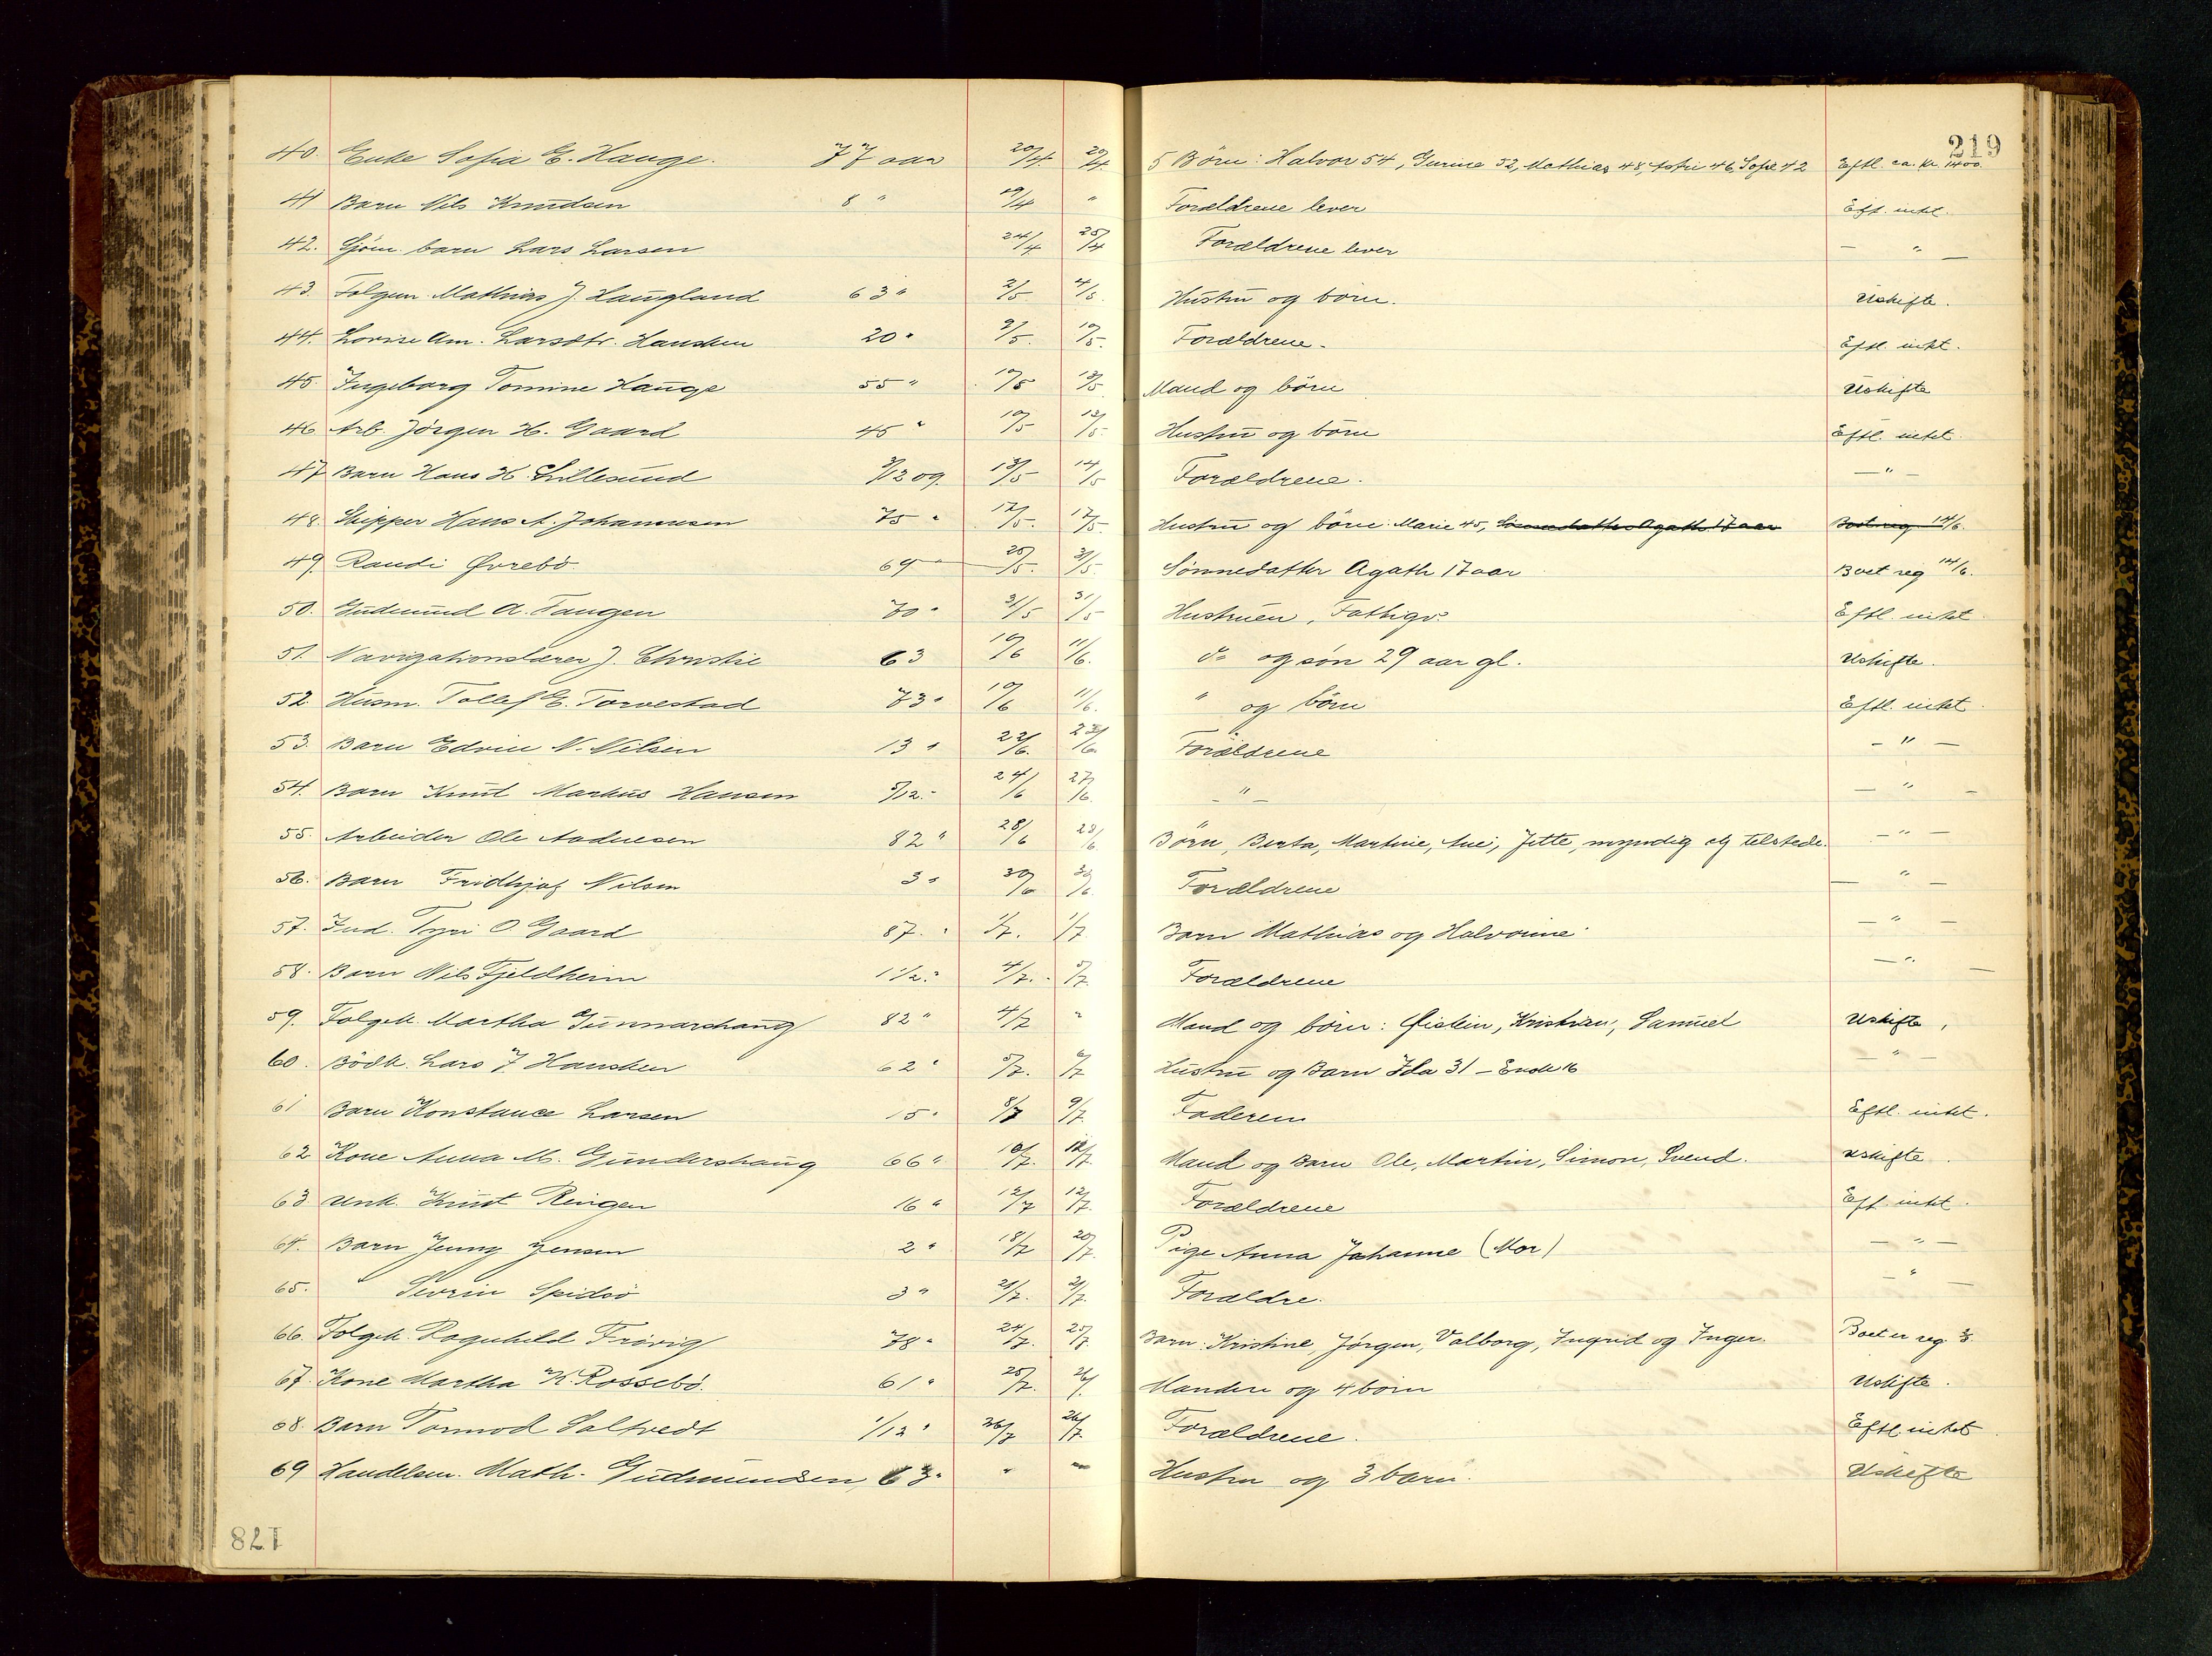 219
40. Enke Sofia E. Hauge. 77 aar 20/4 20/4 5 Börn: Halvor 54, Gurine 52, Mathias 48, 46, Sofie 42 Eftl. ca. kr. 1400
41 Barn Nils Knudsen 8 " 19/4 " Forældrene lever Eft. intet.
42. barn Lars Larsen 24/4 25/4 Forældrene lever — " —
43. Folgem. Mathias J. Haugland 63 " 2/5 4/5. Hustru og börn. Uskifte.
44. Lovise Am. Larsdtr. Hansken 20 " 9/5. 10/5. Forældrene. Eftl. intet.
45. Ingeborg Tomine Hauge 55 " 10/5 13/5 Mand og börn Uskifte
46 Arb. Jörgen H. Gaard 45 " 10/5 13/5. Hustru og börn Eftl. intet.
47 Barn Hans H. Lillesund 3/12 og. 13/5 14/5 Forældrene. — " —
48. Skipper Hans A. Johannesen 75 " 12/5. 17/5. Hustru og börn: Marie 45, Sönnedatter Agath 17 aar Boet reg 14/6.
49. Randi Øvrebö 69 " 25/5. 31/5. Sönnedatter Agath 17 aar Boet reg 14/6.
50. Gudmund A. Tangen 70 " 31/5 31/5 Hustruen, Fattigv. Eftl. intet.
51. Navigationslærer J. Christie 63 10/6 11/6. do og sön 29 aar gl. Uskifte.
52. Husm. Tollef E. Torvestad 73 " 10/6 11/6. " og börn Eftl. intet.
53. Barn Edvin N. Nilsen 13 " 22/6. 23/6. Forældrene — " —
54. Barn Knut Markus Hansen 5/12. " 24/6 27/6. — " — — " —
55. Arbeider Ole Andresen 82 " 28/6 28/6 Börn, Berta, Martine, Ane, Jette, myndig og telstede. — " —
56. Barn Fridthjof Nilsen 3 " 30/6 30/6. Forældrene — " —
57. Ind. Tyri O. Gaard 87. " 1/7. 1/7 Barn Mathias og Halvorine — " —
58. Barn Nils Fjeldheim 1 1/2. " 4/7. 5/7. Forældrene — " —
59. Folgek. Martha Gunnarshaug 82 " 4/7 " Mand og börn: Øistein, Kristian, Samuel Uskifte,
60. Bödk. Lars J. Hansken 62 " 5/7. 6/7 Hustru og Barn Ida 31 — 16 — " —
61 Barn Konstance Larsen 15 " 8/7 9/7. Faderen Eftl. intet.
62 Kone Anna M. Gundershaug 66 " 10/7. 12/7. Mand og Barn Ole, Martin, Simon, Svend. Uskifte.
63 Unk. Knut Ringen 16 " 12/7 12/7. Forældrene Eft. intet.
64. Barn Jenny Jensen 2 " 18/7 20/7. Pige Anna Johanne (Mor) — " —
65. " Sevrin Spidsö 3 " 21/7. 21/7. Forældre. — " —
66. Folgek. Ragnhild Frövig 78 " 24/7. 25/7. Barn: Kristine, Jørgen, Valborg, Ingrid og Inger. Boet er reg
67. Kone Martha K. Rossebö. 61 " 25/7. 26/7. Manden og 4 börn Uskifte.
68. Barn Tormod Saltvedt 1/12 " 26/7 26/7. Forældrene. Eftl. intet.
69 Handelsm. Math. Gudmundsen, 63 " " " Hustru og 3 barn. Uskifte
178